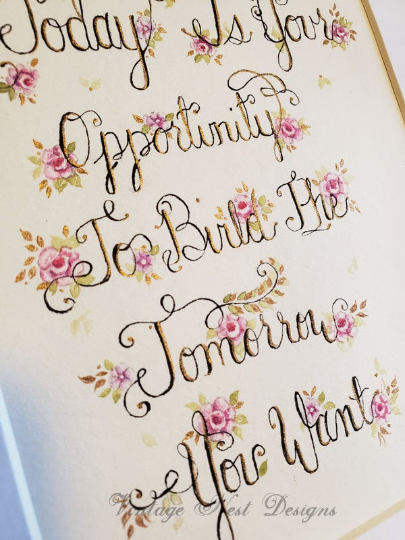 Today Is Your
Opportunity
To Build The
Tomorrow
You Want
Vintage Nest Designs